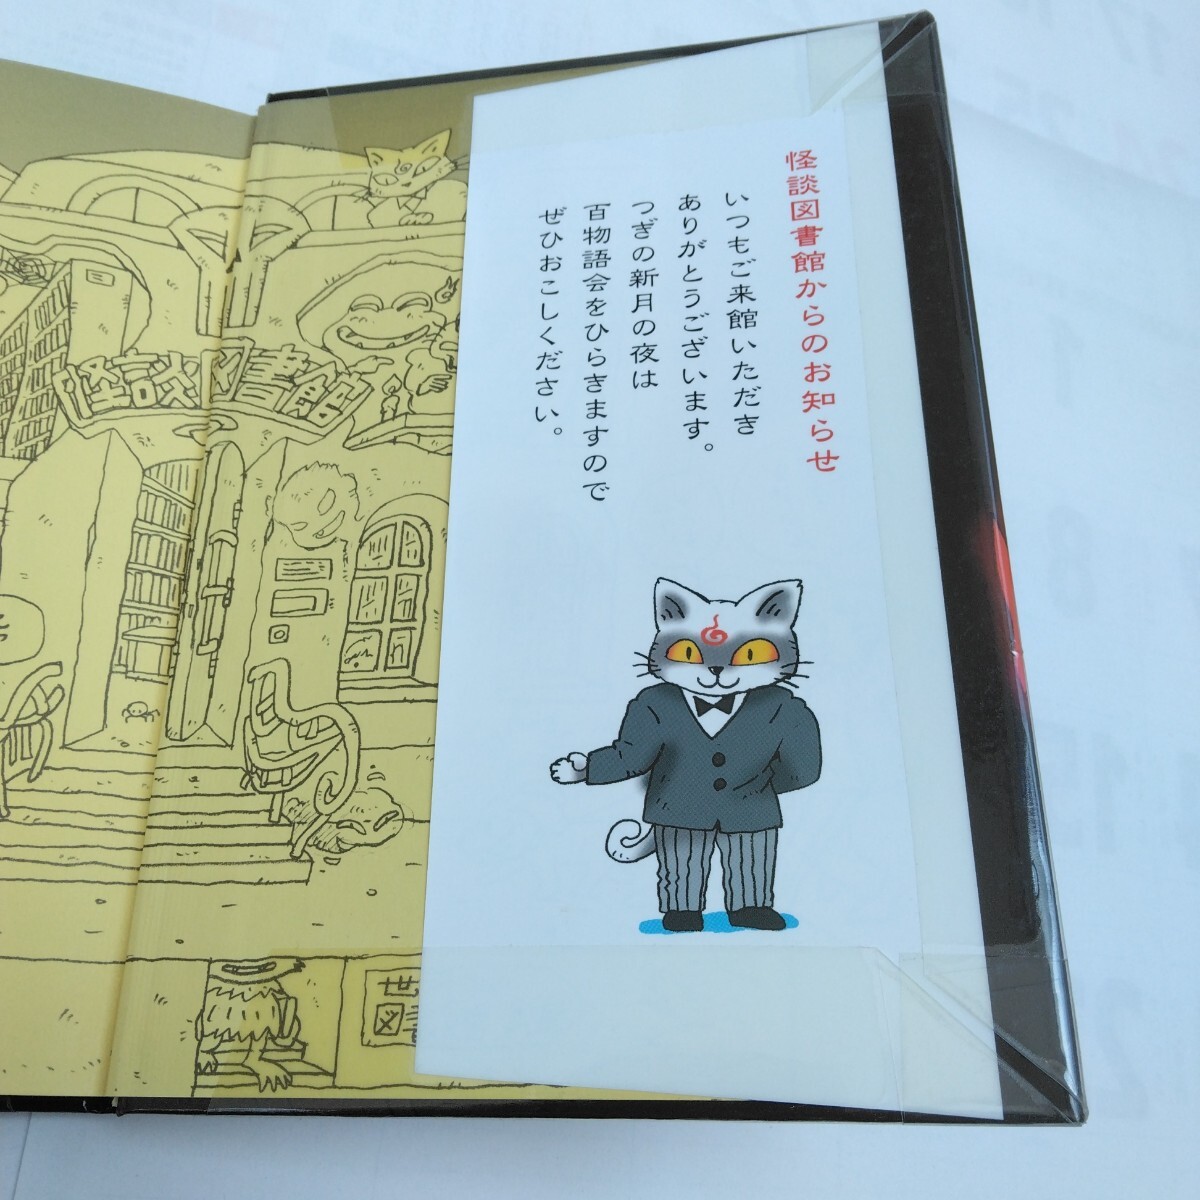 怪談図書館からのお知らせ
いつもご来館いただき
ありがとうございます。
つぎの新月の夜は
百物語会をひらきますので
ぜひおこしください。
怪談図書館